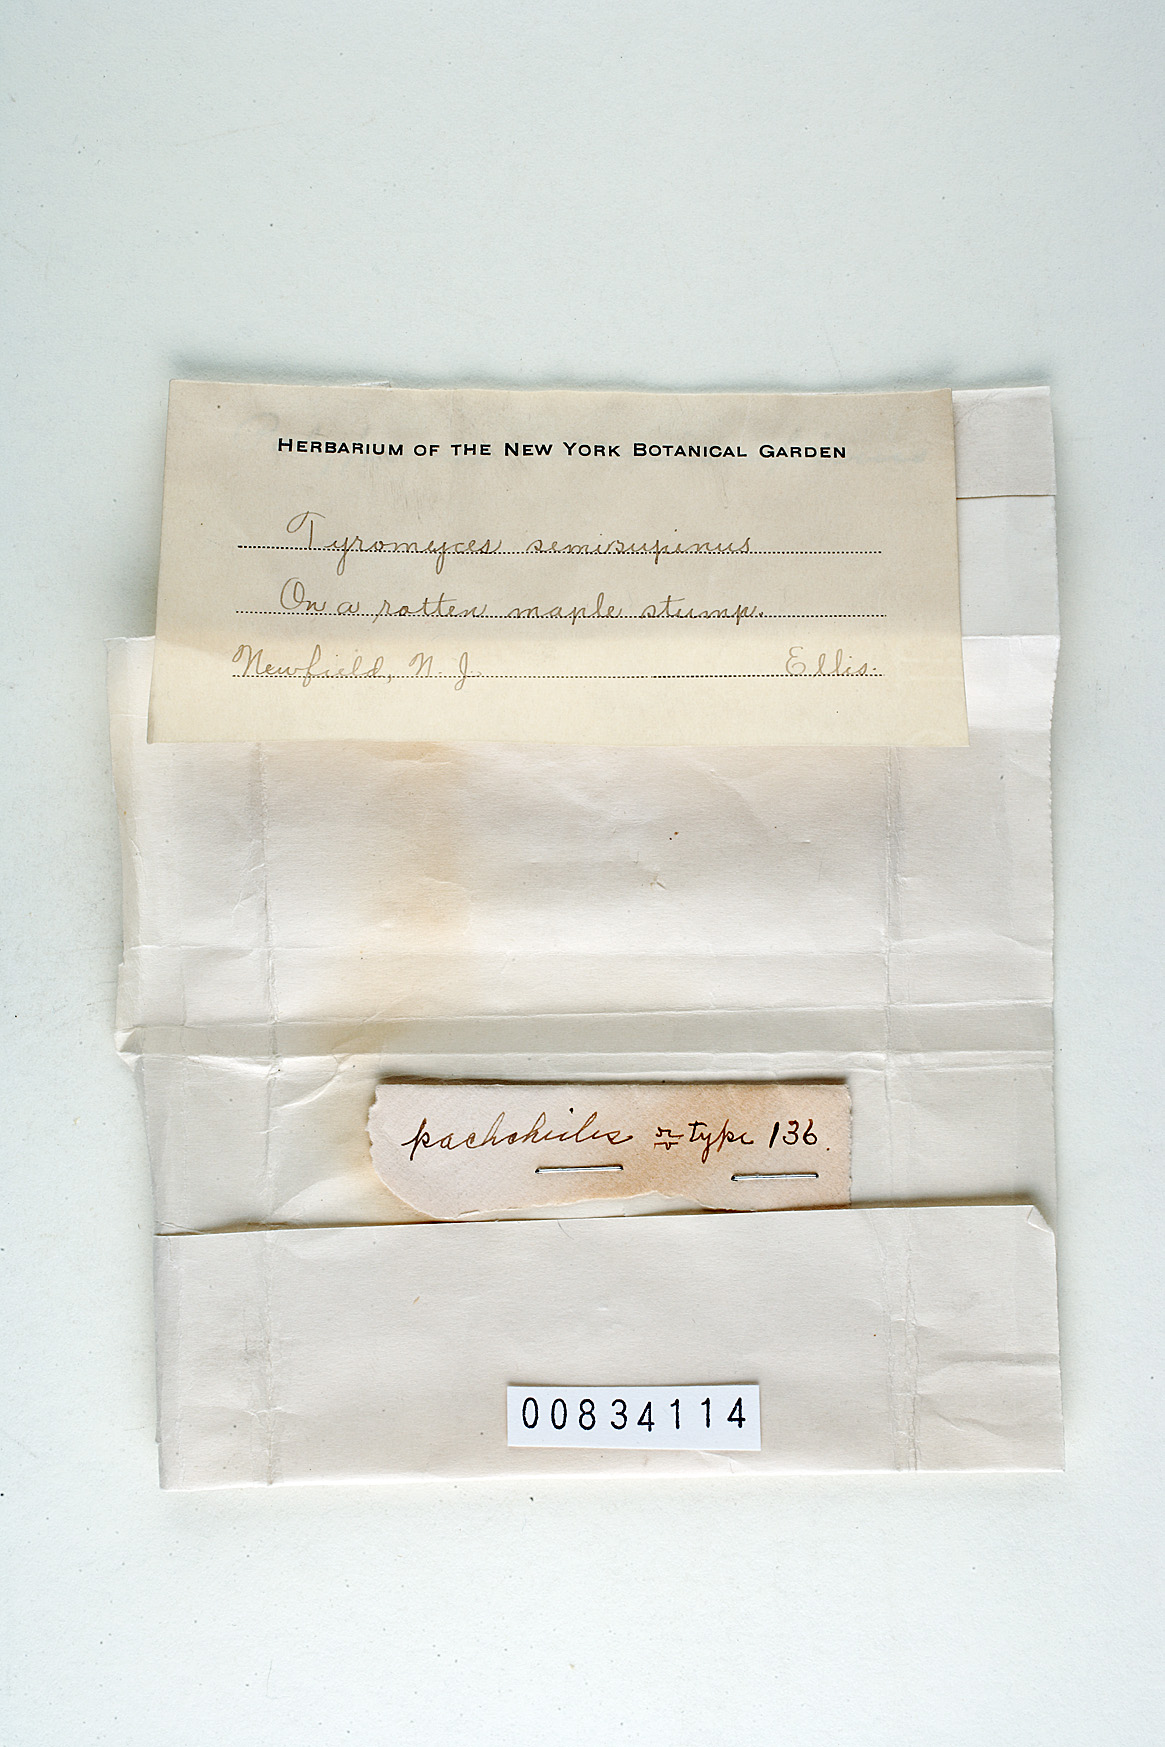 HERBARIUM OF THE NEW YORK BOTANICAL GARDEN
Tyromyces semisupinus
On a rotten maple stump.
Newfield, N. J. Ellis.
pachcheiles type 136.
00834114